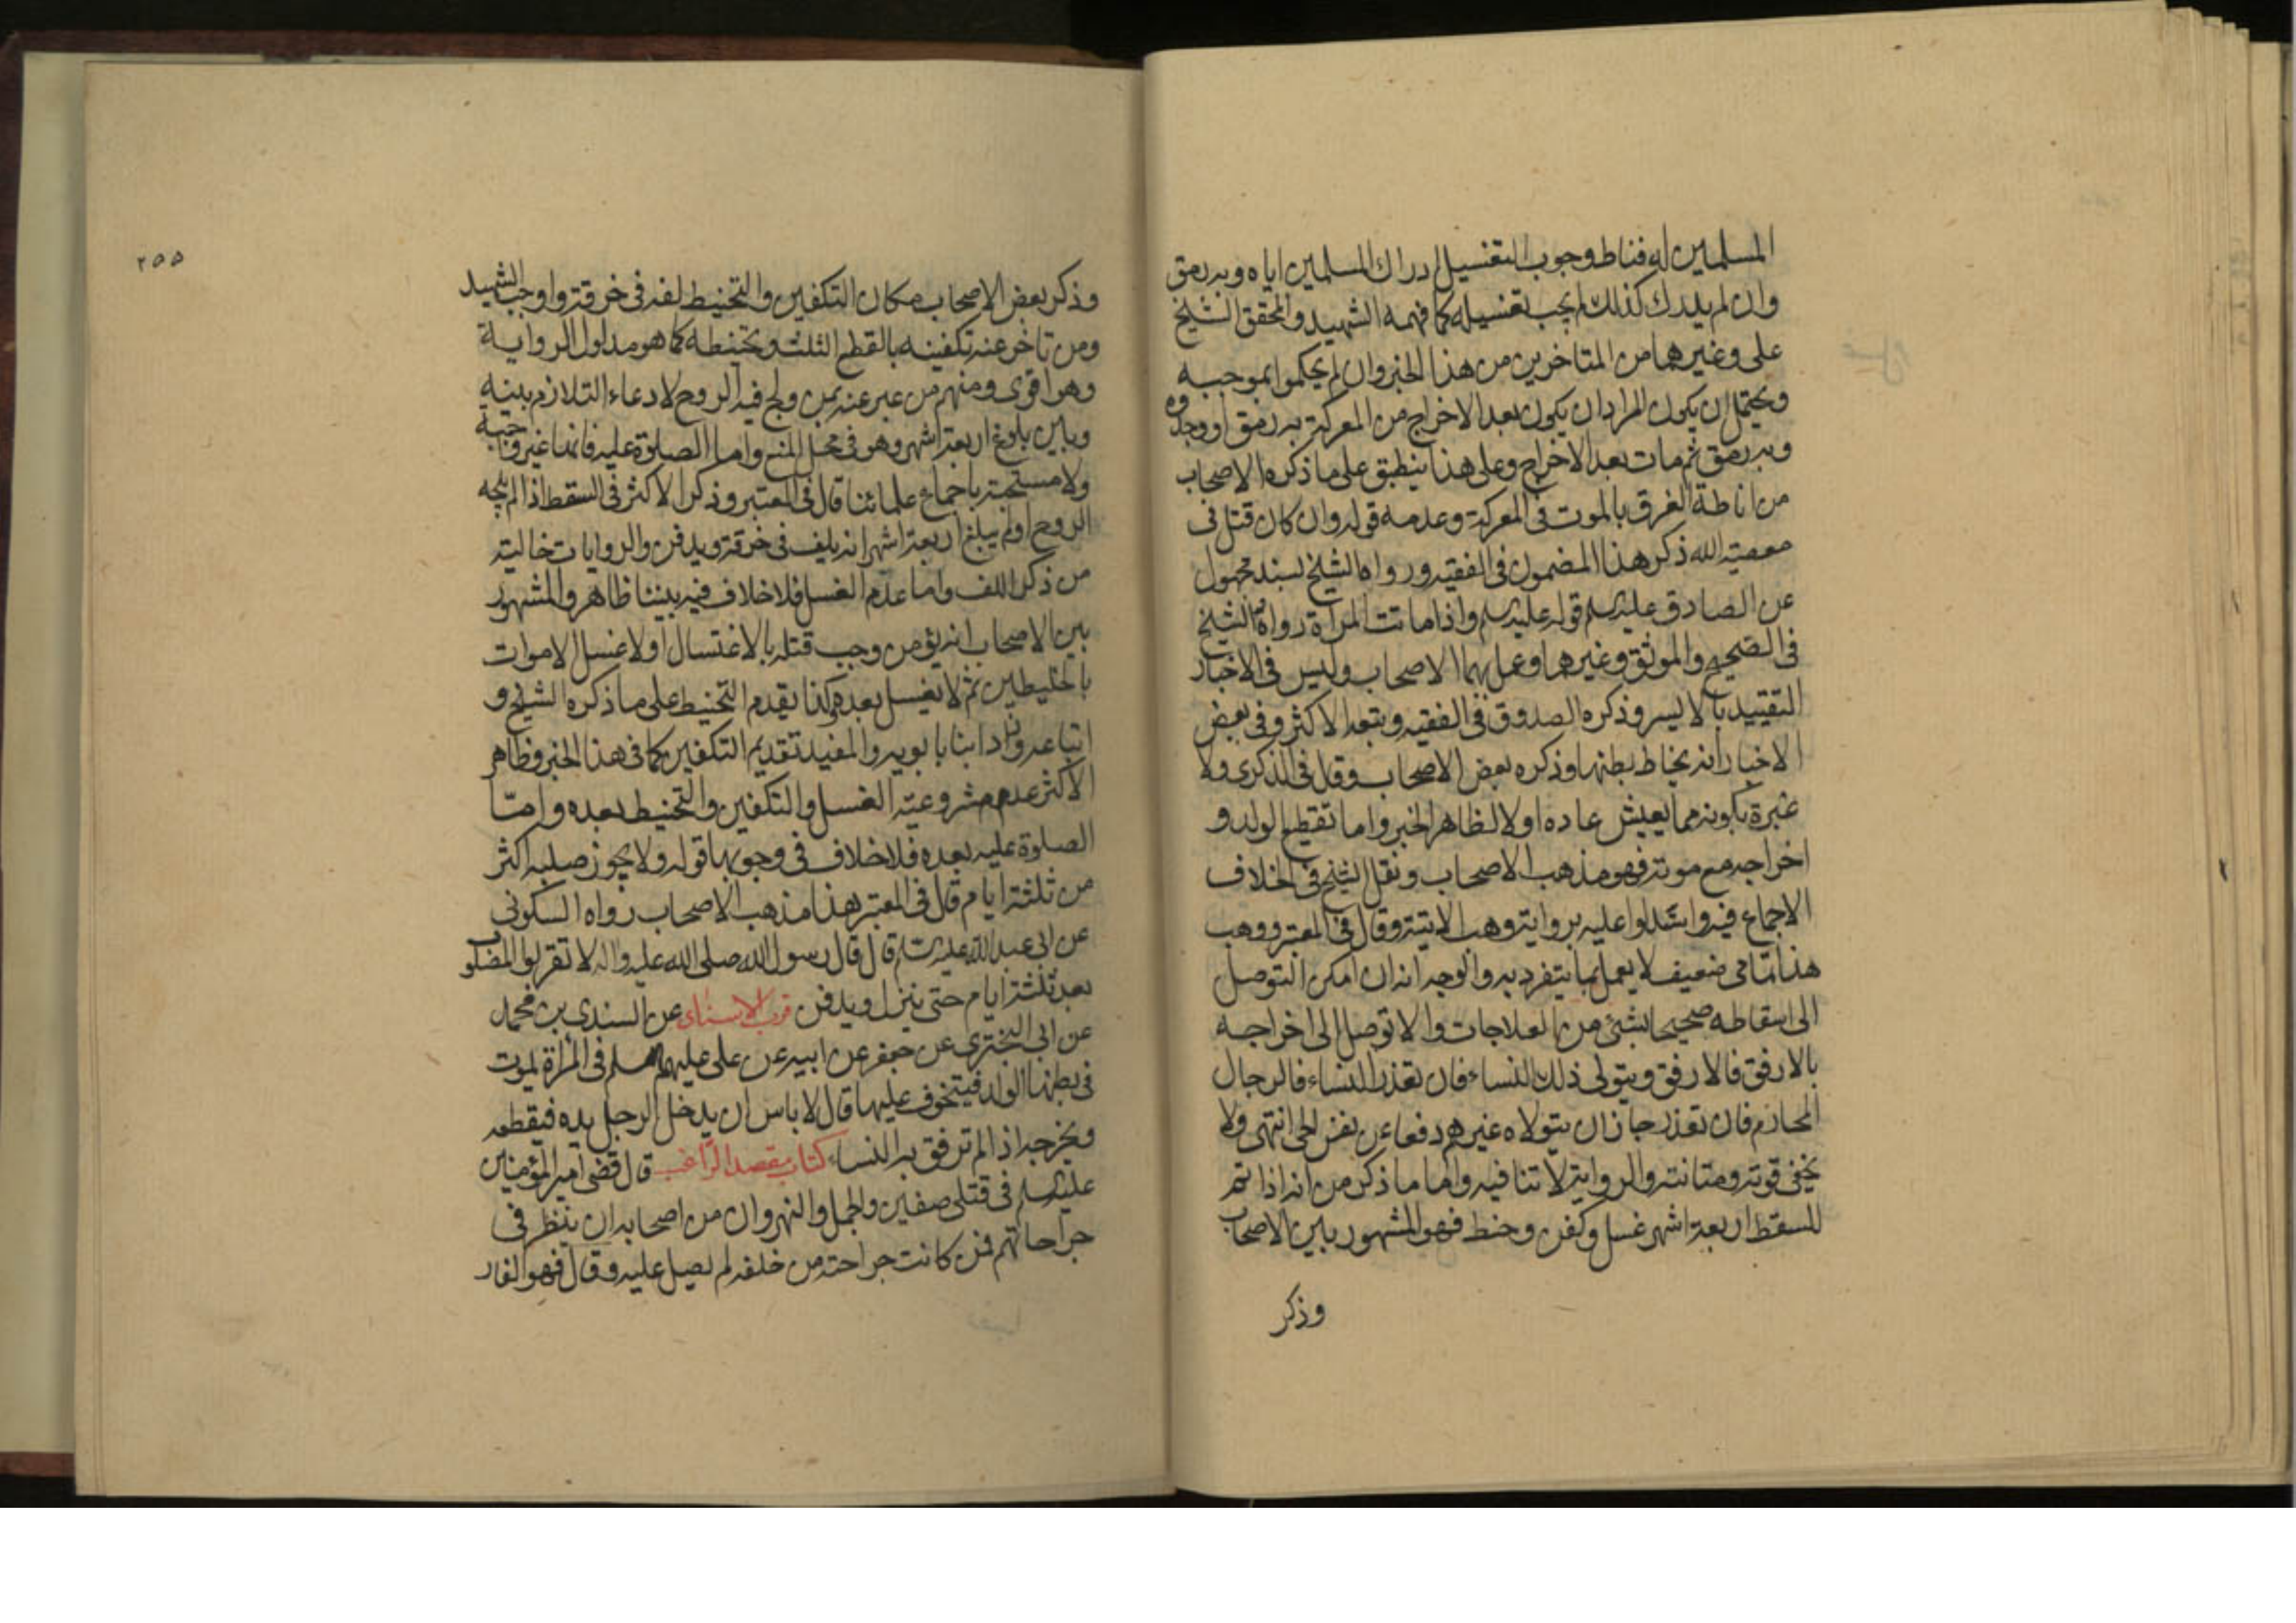 المسلمين له فناط وجوب التغسيل ادراك المسلمين اياه وبه رمق
وان لم يدرك كذلك لم يجب تغسيله كما فهمه الشهيد والمحقق الشيخ
على وغيرهما من المتاخرين من هذا الخبر وان لم يحكموا بموجبه
ويحتمل ان يكون المراد ان يكون بعد الاخراج من المعركة به رمق او وجدوه
وبه رمق ثم مات بعد الاخراج وعلى هذا ينطبق على ما ذكره الاصحاب
من اناطة الفرق بالموت فى المعركة وعدمه قوله وان كان قتل فى
معصية الله ذكر هذا المضمون فى الفقيه ورواه الشيخ بسند مجهول
عن الصادق عليه السلم قوله عليه السلم واذا ماتت المراة رواه الشيخ
فى الصحيح والموثق وغيرهما وعمل بهما الاصحاب وليس فى الاخبار
التقييد بالايسر وذكره الصدوق فى الفقيه وتبعه الاكثر وفى بعض
الاخبار انه يخاط بطنها وذكره بعض الاصحاب وقال فى الذكرى ولا
عبرة بكونه مما يعيش عاده اولا لظاهر الخبر واما تقطيع الولد و
اخراجه مع موته فهو مذهب الاصحاب ونقل الشيخ فى الخلاف
الاجماع فيه واستدلوا عليه برواية وهب الاتية وقال فى المعتبر ووهب
هذا عامى ضعيف لا يعمل بما يتفرد به والوجه انه ان امكن التوصل
الى اسقاطه صحيحا بشئ من العلاجات والا توصل الى اخراجه
بالارفق فالارفق ويتولى ذلك النساء فان تعذر النساء فالرجال
المحارم فان تعذر جاز ان يتولاه غيرهم دفعا عن نفس الحى انتهى ولا
يخفى قوته ومتانته والرواية لا تنافيه واما ما ذكر من انه اذا تم
للسقط اربعة اشهر غسل وكفن وحنط فهو المشهور بين الاصحاب
وذكر
٢٥٥
وذكر بعض الاصحاب مكان التكفين والتحنيط لفه فى خرقة واوجب الشهيد
ومن تاخر عنه تكفينه بالقطع الثلث وتحنيطه كما هو مدلول الرواية
وهو اقوى ومنهم من عبر عنه بمن ولج فيه الروح لادعاء التلازم بينه
وبين بلوغ اربعة اشهر وهو فى محل المنع واما الصلوة عليه فانها غير واجبة
ولا مستحبة باجماع علمائنا قال فى المعتبر وذكر الاكثر فى السقط اذا لم يلجه
الروح او لم يبلغ اربعة اشهر انه يلف فى خرقة ويدفن والروايات خالية
من ذكر اللف واما عدم الغسل فلا خلاف فيه بيننا ظاهر والمشهور
بين الاصحاب انه يؤمن وجب قتله بالاغتسال اولا غسل الاموات
بالخليطين ثم لا يغسل بعده وكذا يقدم التحنيط على ما ذكره الشيخ و
اتباعه وزاد ابنا بابويه والمفيد تقديم التكفين كما فى هذا الخبر وظاهر
الاكثر عدم مشروعية الغسل والتكفين والتحنيط بعده وامّا
الصلوة عليه بعده فلا خلاف فى وجوبها قوله ولا يجوز صلبه اكثر
من ثلثة ايام قال فى المعتبر هذا مذهب الاصحاب رواه السكونى
عن ابى عبد الله عليه السلم قال قال رسول الله صلى الله عليه واله لا تقربوا المصلوب
بعد ثلثة ايام حتى ينزل ويدفن قرب الاسناد عن السندى بن محمد
عن ابى البخترى عن جعفر عن ابيه عن على عليهم السلم فى المراة يموت
فى بطنها الولد فيتخوف عليها قال لا باس ان يدخل الرجل يده فيقطعه
ويخرجه اذا لم ترفق به النساء كتاب مقصد الراغب قال قضى امير المؤمنين
عليه السلم فى قتلى صفين والجمل والنهروان من اصحابه ان ينظر فى
جراحاتهم فمن كانت جراحته من خلفه لم يصل عليه وقال فهو الفار